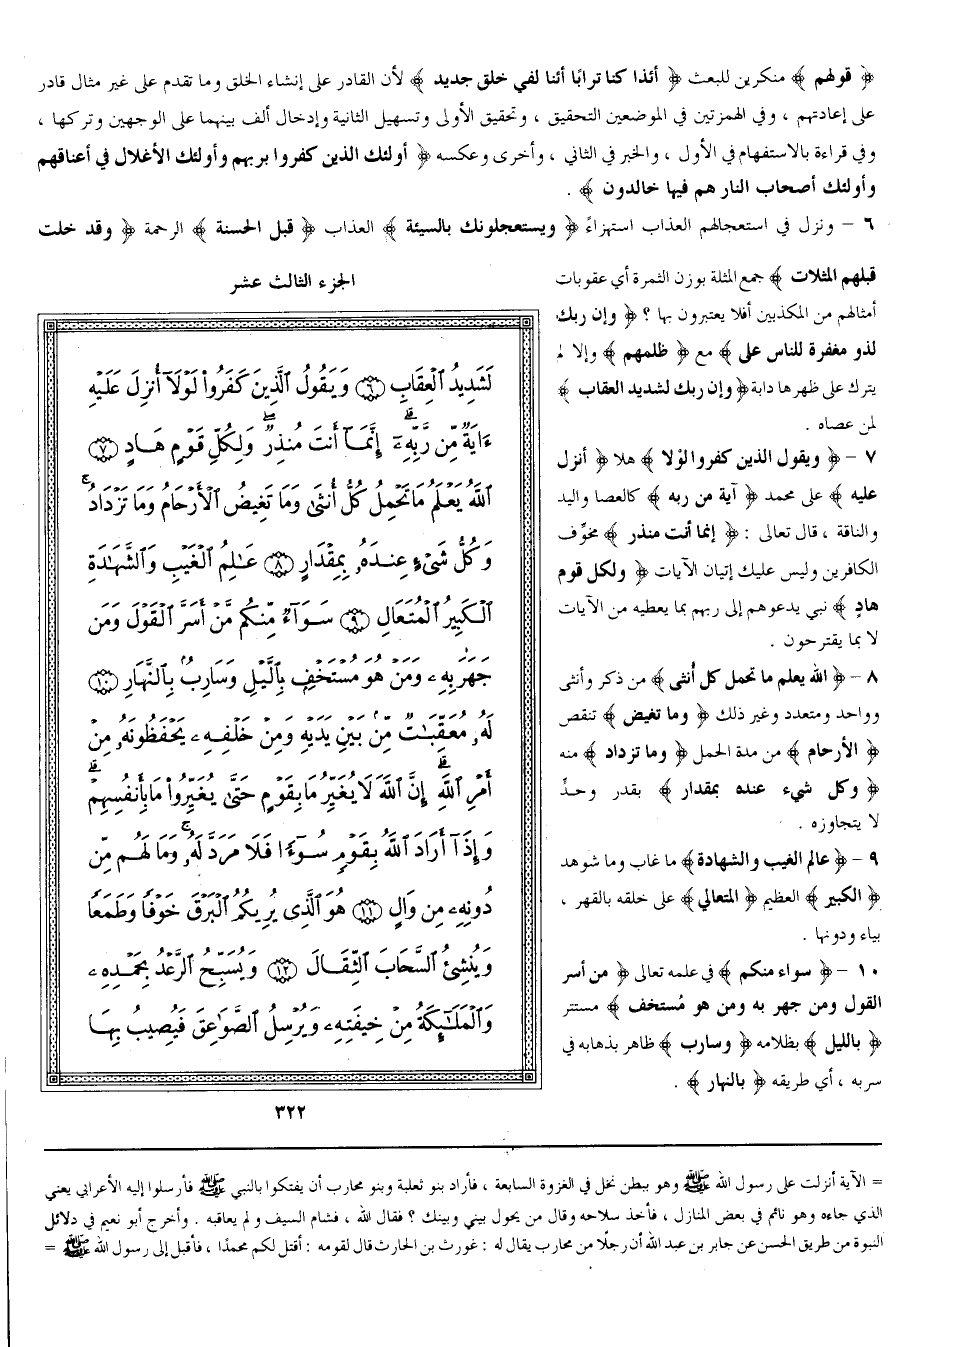 ﴿ قولهم ﴾ منكرين للبعث ﴿ أئذا كنا ترابًا أئنا لفي خلق جديد ﴾ لأن القادر على إنشاء الخلق وما تقدم على غير مثال قادر
على إعادتهم ، وفي الهمزتين في الموضعين التحقيق ، وتحقيق الأولى وتسهيل الثانية وإدخال ألف بينهما على الوجهين وتركها ،
وفي قراءة بالاستفهام في الأول ، والخبر في الثاني ، وأخرى وعكسه ﴿ أولئك الذين كفروا بربهم وأولئك الأغلال في أعناقهم
وأولئك أصحاب النار هم فيها خالدون ﴾ .
٦ – ونزل في استعجالهم العذاب استهزاءً ﴿ ويستعجلونك بالسيئة ﴾ العذاب ﴿ قبل الحسنة ﴾ الرحمة ﴿ وقد خلت
قبلهم المثلات ﴾ جمع المثلة بوزن الثمرة أي عقوبات
أمثالهم من المكذبين أفلا يعتبرون بها ؟ ﴿ وإن ربك
لذو مغفرة للناس على ﴾ مع ﴿ ظلمهم ﴾ وإلا لم
يترك على ظهرها دابة ﴿ وإن ربك لشديد العقاب ﴾
لمن عصاه .
٧ – ﴿ ويقول الذين كفروا لوْلا ﴾ هلا ﴿ أنزل
عليه ﴾ على محمد ﴿ آية من ربه ﴾ كالعصا واليد
والناقة ، قال تعالى : ﴿ إنما أنت منذر ﴾ مخوِّف
الكافرين وليس عليك إتيان الآيات ﴿ ولكل قوم
هادٍ ﴾ نبي يدعوهم إلى ربهم بما يعطيه من الآيات
لا بما يقترحون .
٨ – ﴿ الله يعلم ما تحمل كل أنثى ﴾ من ذكر وأنثى
وواحد ومتعدد وغير ذلك ﴿ وما تغيض ﴾ تنقص
﴿ الأرحام ﴾ من مدة الحمل ﴿ وما تزداد ﴾ منه
﴿ وكل شيء عنده بمقدار ﴾ بقدر وحدٍّ
لا يتجاوزه .
٩ – ﴿ عالم الغيب والشهادة ﴾ ما غاب وما شوهد
﴿ الكبير ﴾ العظيم ﴿ المتعالي ﴾ على خلقه بالقهر ،
بياء ودونها .
١٠ – ﴿ سواء منكم ﴾ في علمه تعالى ﴿ من أسر
القول ومن جهر به ومن هو مُستخف ﴾ مستتر
﴿ بالليل ﴾ بظلامه ﴿ وسارب ﴾ ظاهر بذهابه في
سربه ، أي طريقه ﴿ بالنهار ﴾ .
الجزء الثالث عشر
لَشَدِيدُ الْعِقَابِ ٦ وَيَقُولُ الَّذِينَ كَفَرُوا لَوْلَا أُنزِلَ عَلَيْهِ
ءَايَةٌ مِّن رَّبِّهِۦٓ إِنَّمَآ أَنتَ مُنذِرٌ وَلِكُلِّ قَوْمٍ هَادٍ ٧
اللَّهُ يَعْلَمُ مَا تَحْمِلُ كُلُّ أُنثَىٰ وَمَا تَغِيضُ الْأَرْحَامُ وَمَا تَزْدَادُ
وَكُلُّ شَيْءٍ عِندَهُ بِمِقْدَارٍ ٨ عَٰلِمُ الْغَيْبِ وَالشَّهَٰدَةِ
الْكَبِيرُ الْمُتَعَالِ ٩ سَوَآءٌ مِّنكُم مَّنْ أَسَرَّ الْقَوْلَ وَمَن
جَهَرَ بِهِۦ وَمَنْ هُوَ مُسْتَخْفٍ بِالَّيْلِ وَسَارِبٌ بِالنَّهَارِ ١٠
لَهُۥ مُعَقِّبَٰتٌ مِّنۢ بَيْنِ يَدَيْهِ وَمِنْ خَلْفِهِۦ يَحْفَظُونَهُۥ مِنْ
أَمْرِ اللَّهِ إِنَّ اللَّهَ لَا يُغَيِّرُ مَا بِقَوْمٍ حَتَّىٰ يُغَيِّرُوا مَا بِأَنفُسِهِمْ
وَإِذَآ أَرَادَ اللَّهُ بِقَوْمٍ سُوٓءًا فَلَا مَرَدَّ لَهُۥ وَمَا لَهُم مِّن
دُونِهِۦ مِن وَالٍ ١١ هُوَ الَّذِي يُرِيكُمُ الْبَرْقَ خَوْفًا وَطَمَعًا
وَيُنشِئُ السَّحَابَ الثِّقَالَ ١٢ وَيُسَبِّحُ الرَّعْدُ بِحَمْدِهِۦ
وَالْمَلَٰٓئِكَةُ مِنْ خِيفَتِهِۦ وَيُرْسِلُ الصَّوَٰعِقَ فَيُصِيبُ بِهَا
٣٢٢
= الآية أنزلت على رسول الله ﷺ وهو ببطن نخل في الغزوة السابعة ، فأراد بنو ثعلبة وبنو محارب أن يفتكوا بالنبي ﷺ فأرسلوا إليه الأعرابي يعني
الذي جاءه وهو نائم في بعض المنازل ، فأخذ سلاحه وقال من يحول بيني وبينك ؟ فقال الله ، فشام السيف ولم يعاقبه . وأخرج أبو نعيم في دلائل
النبوة من طريق الحسن عن جابر بن عبد الله أن رجلًا من محارب يقال له : غورث بن الحارث قال لقومه : أقتل لكم محمدًا ، فأقبل إلى رسول الله ﷺ =